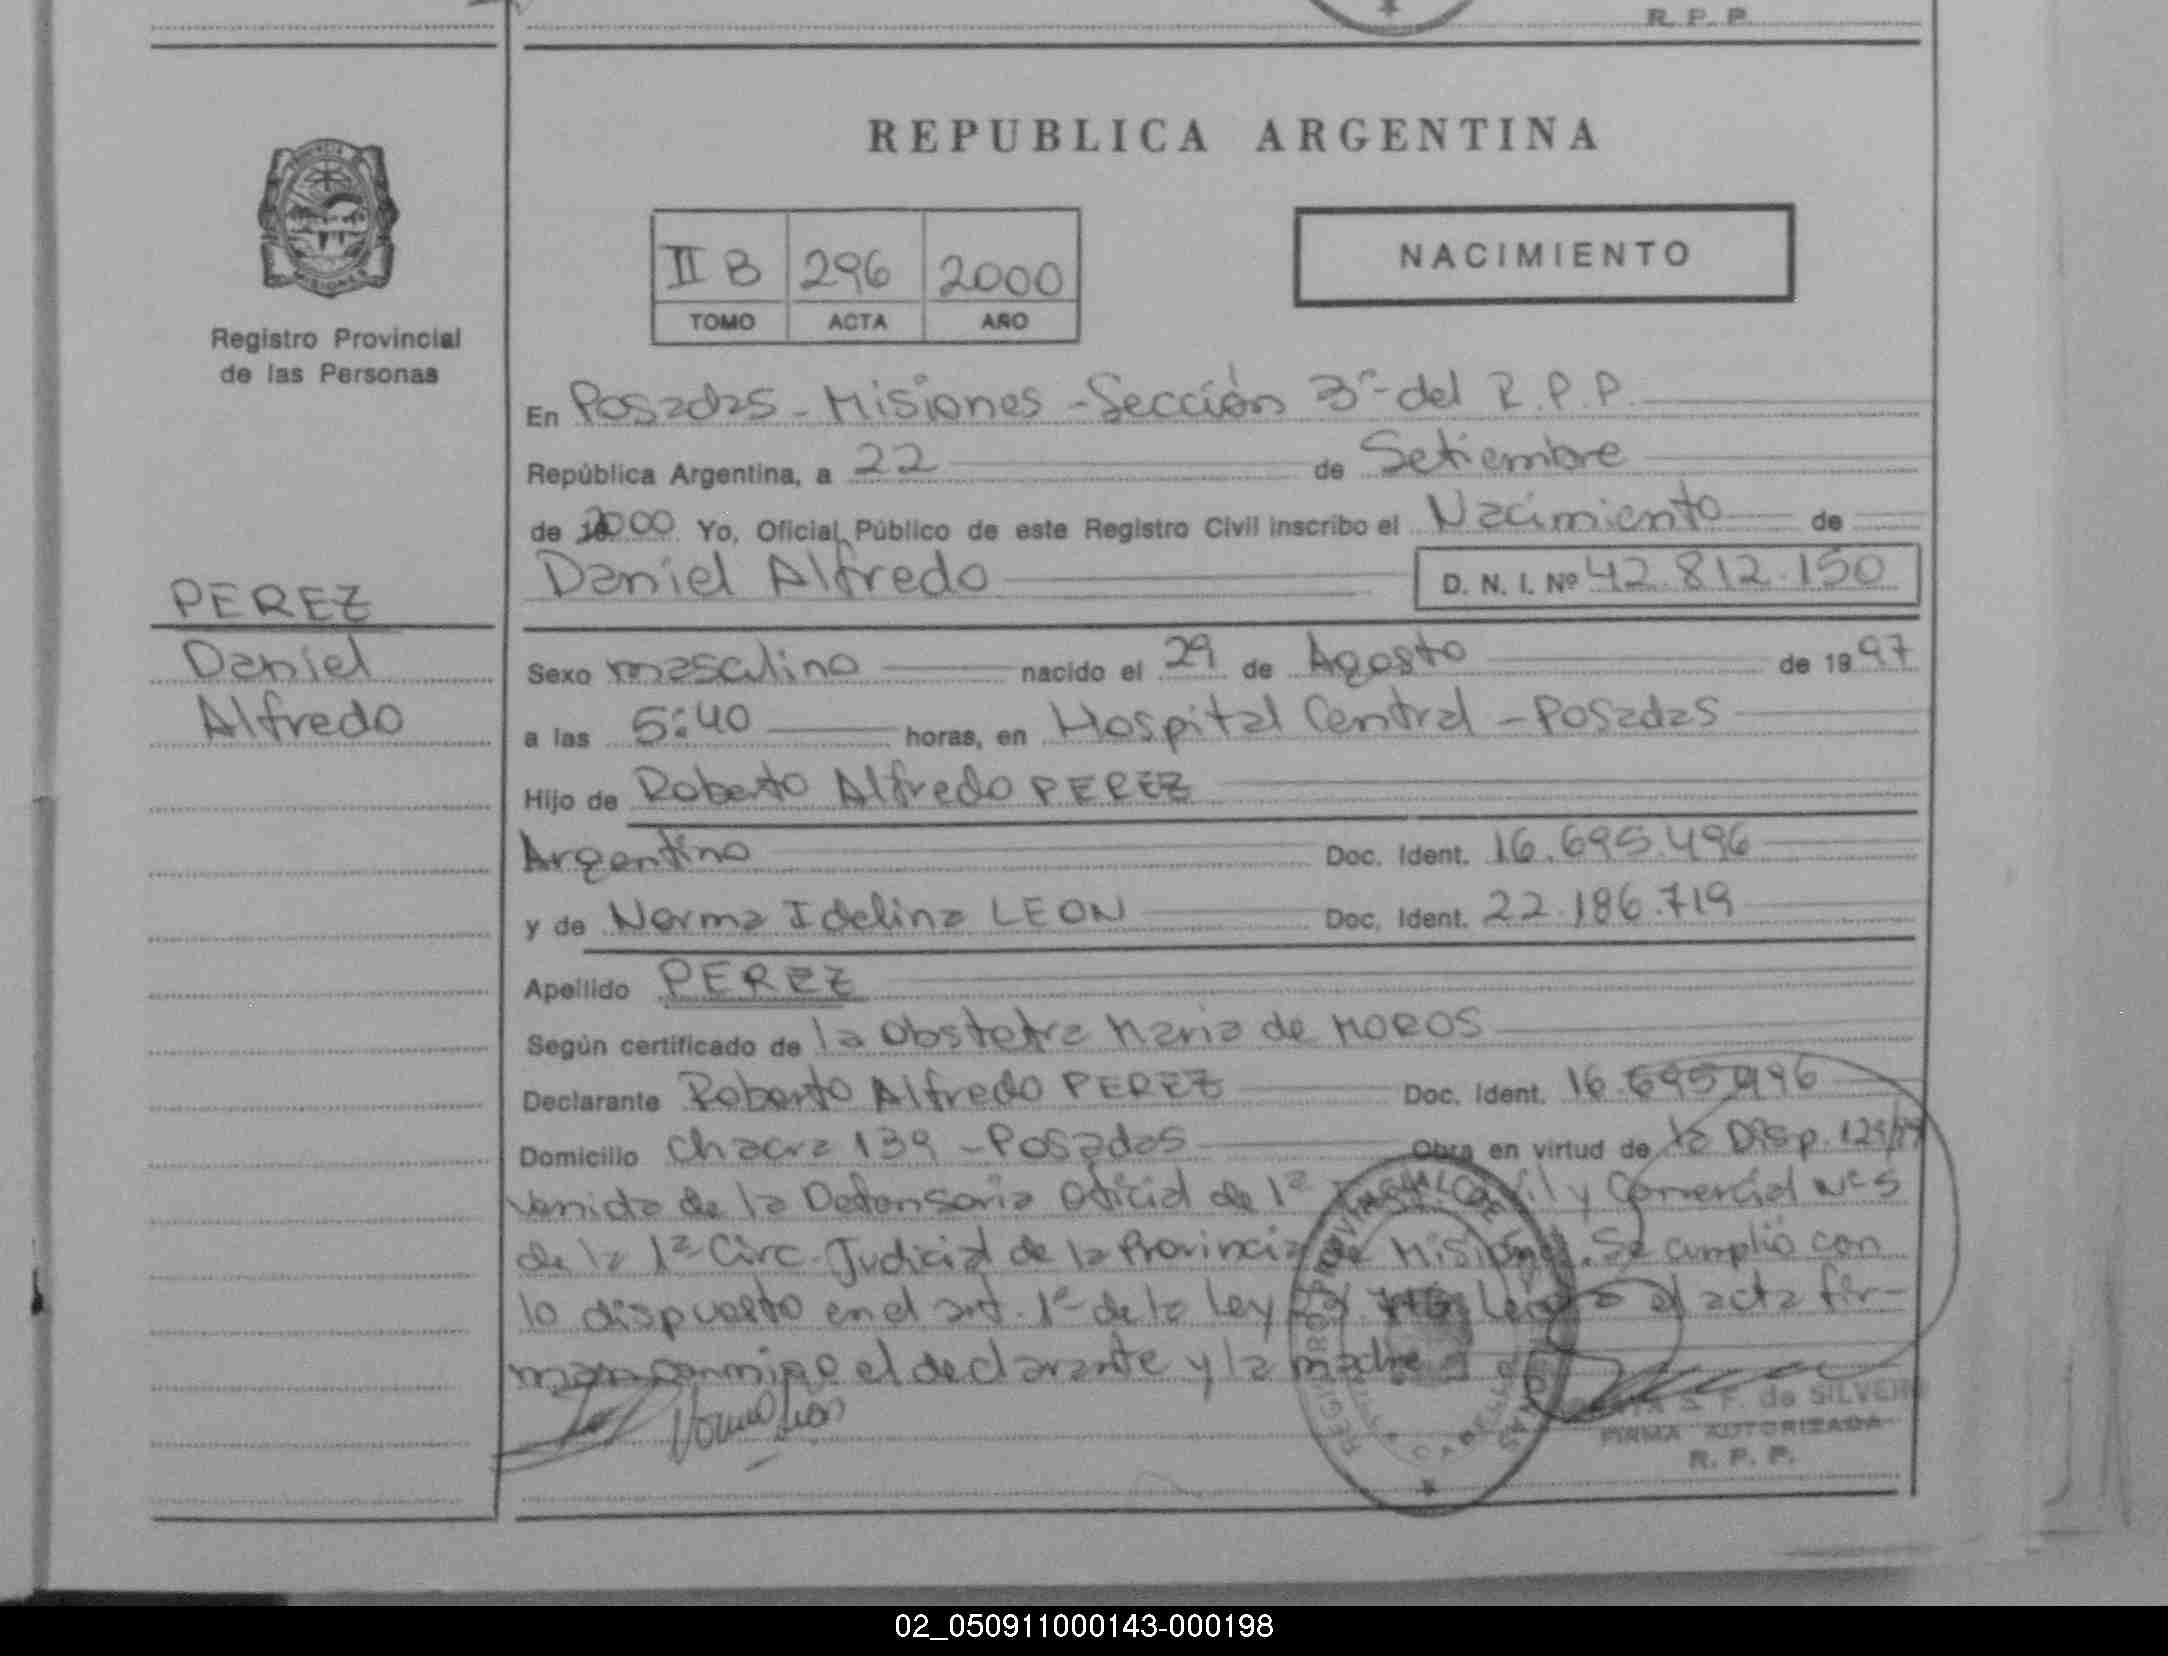 R. P. P.
REPUBLICA ARGENTINA
II B 296 2000
TOMO ACTA AÑO
NACIMIENTO
MISIONES
Registro Provincial
de las Personas
PEREZ
Daniel
Alfredo
En Posadas - Misiones - Sección 3ª del R.P.P.
República Argentina, a 22 de Setiembre
de 2000 Yo, Oficial Público de este Registro Civil inscribo el Nacimiento de
Daniel Alfredo D. N. I. Nº 42.812.150
Sexo masculino nacido el 29 de Agosto de 1997
a las 5:40 horas, en Hospital Central - Posadas
Hijo de Roberto Alfredo PEREZ
Argentino Doc. Ident. 16.695.496
y de Norma Idelina LEON Doc. Ident. 22.186.719
Apellido PEREZ
Según certificado de la Obstetra Maria de MOROS
Declarante Roberto Alfredo PEREZ Doc. Ident. 16.695.496
Domicilio chacra 139 - Posadas Obra en virtud de la Disp.
venida de la Defensoria Oficial de 1ª y Comercial Nº 5
de la 1ª Circ. Judicial de la Provincia de Misiones. Se cumplió con
lo dispuesto en el art. 1º de la Ley Leida el acta fir-
man conmigo el declarante y la madre
Norma León
REGISTRO PROVINCIAL DE LAS PERSONAS
F. de SILVEIRA
FIRMA AUTORIZADA
R. P. P.
02_050911000143-000198